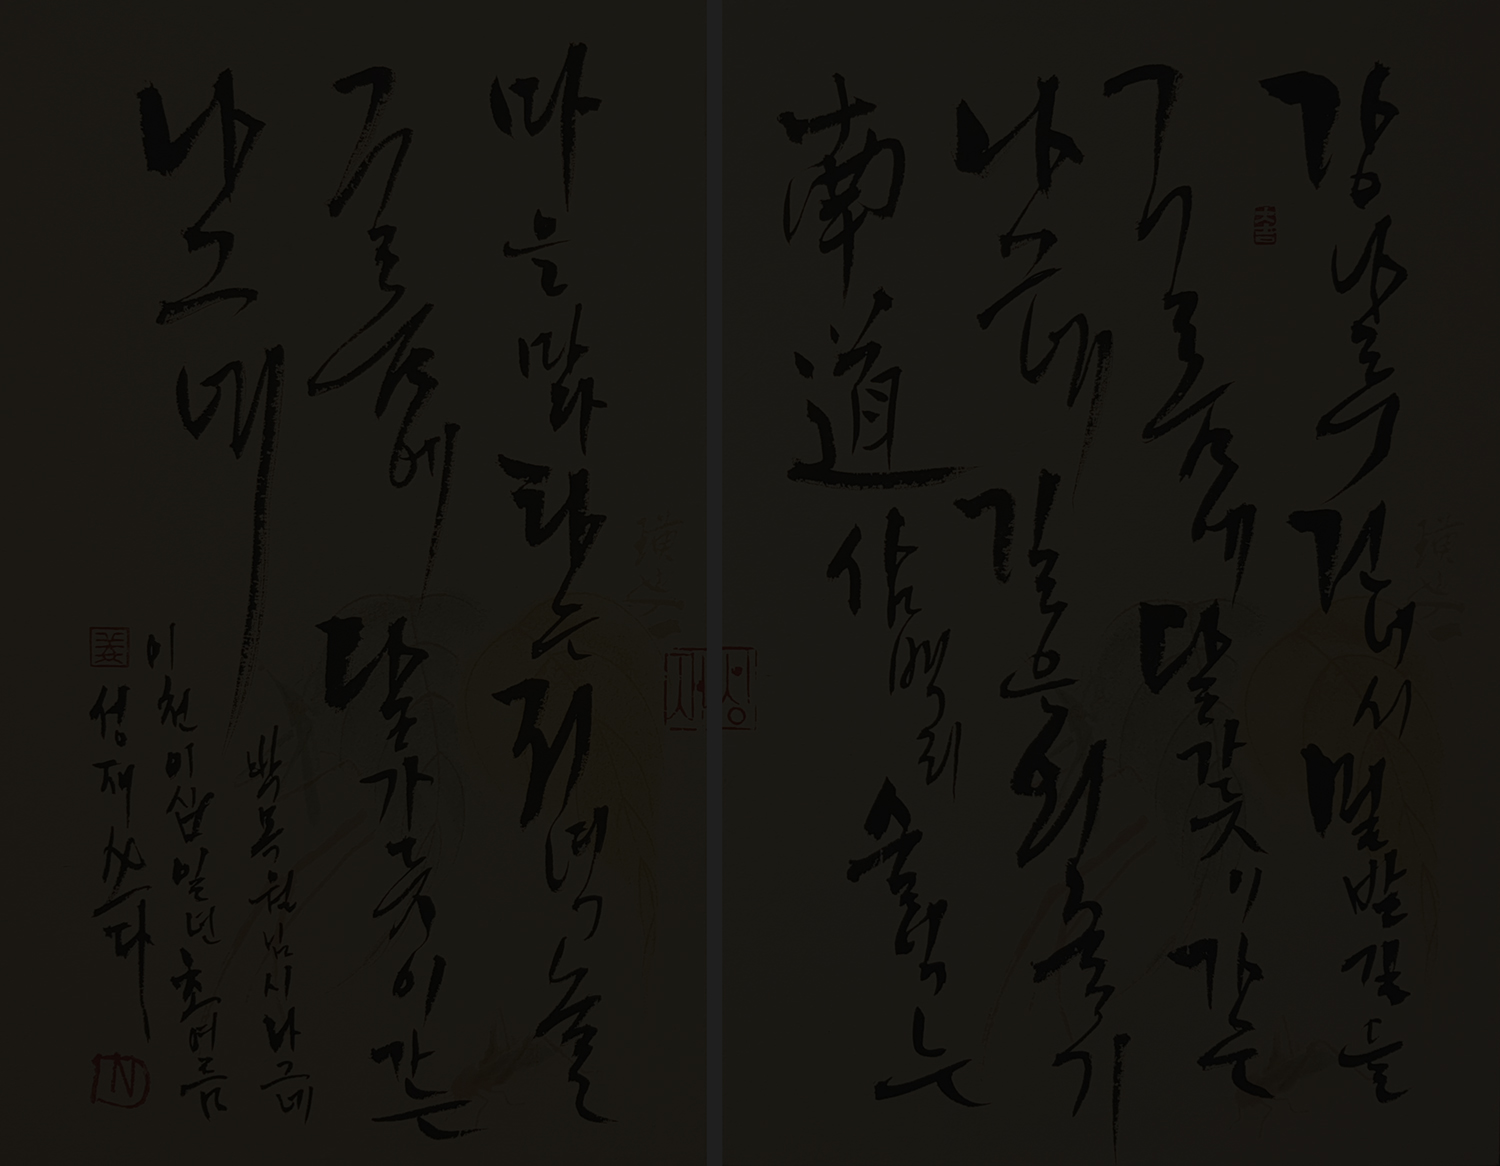 강나루 건너서 밀밭길을
구름에 달 가듯이 가는
나그네 길은 외줄기
南道 삼백리 술 익는
마을마다 타는 저녁놀
구름에 달 가듯이 가는
나그네
박목월님 시 나그네
이천이십일년 초여름
성재 쓰다